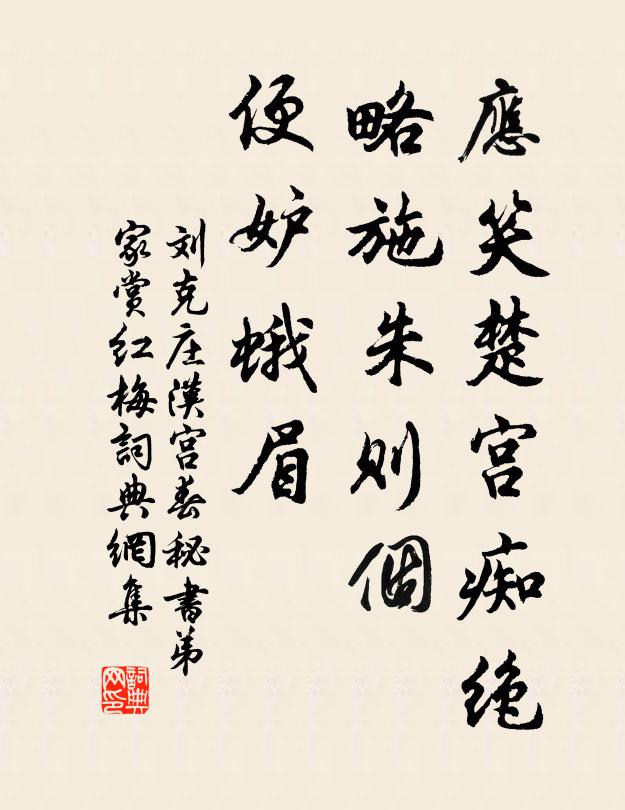 應笑楚宮痴絶
略施朱則個
便妒蛾眉
刘克庄漢宮春秘書弟
家赏红梅詞典網集
詞典网印